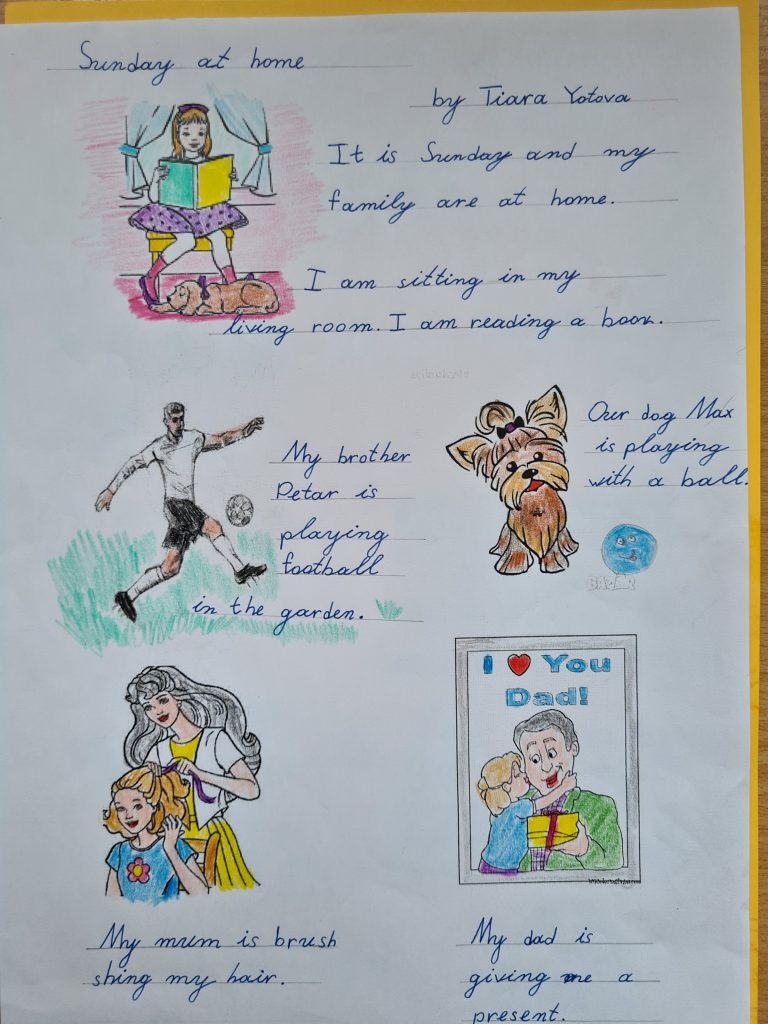 Sunday at home
by Tiara Yotova
It is Sunday and my
family are at home.
I am sitting in my
living room. I am reading a book.
My brother
Petar is
playing
football
in the garden.
Our dog Max
is playing
with a ball.
I ❤ You
Dad!
My mum is brush
shing my hair.
My dad is
giving me a
present.